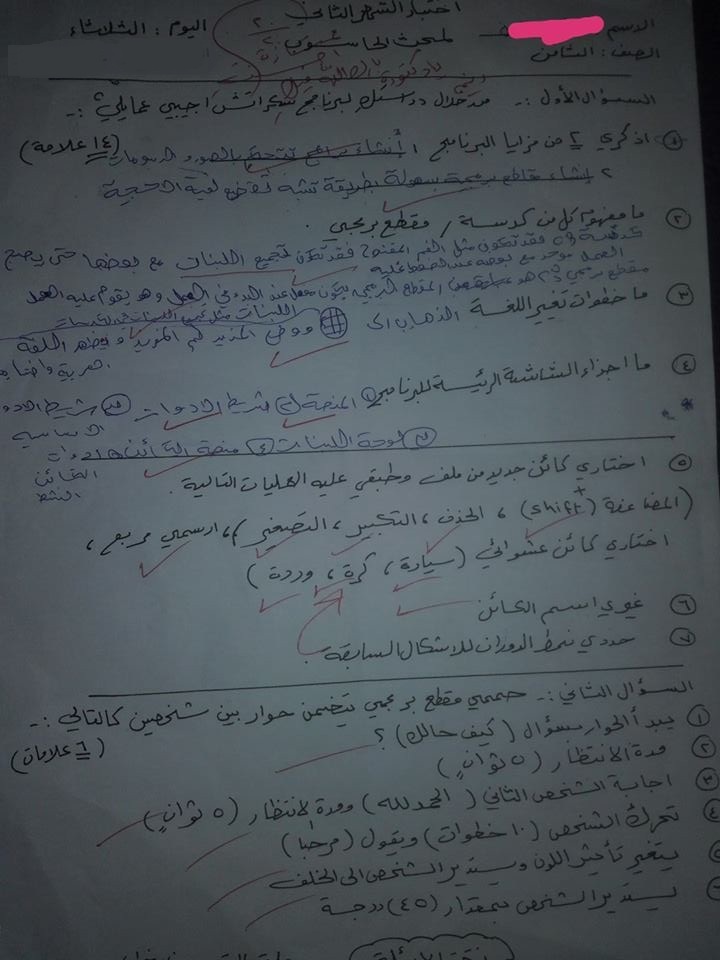 اختبار الشهر الثاني
الاسم
لمبحث الحاسوب
اليوم : الثلاثاء
الصف : الثامن
السؤال الأول :- من خلال دراستك لبرنامج سكراتش اجيبي عما يلي :-
(١٤ علامة)
١ اذكري ٢ من مزايا البرنامج ١ أنشاء برامج بالصور و الرسومات
٢ إنشاء مقاطع برمجية بسهولة بطريقة تشبه تقطع لعبة الاحجية
٢ ما مفهوم كل من كدسة / مقطع برمجي .
فقد تكون مثل فقد تكون تجميع اللبنات مع بعضها حتى يصبح
العمل موحد مع بعضه عند الضغط عليه
مقطع برمجي هو المقطع البرمجي يكون عند البدء في العمل وهو يقوم عليه العمل
٣ ما خطوات تغيير اللغة الذهاب الى ومن المزيد ثم المزيد و يظهر اللغة
العربية
٤ ما اجزاء الشاشة الرئيسة للبرنامج ١ المنصة ٢ شريط الادوات ٣ شريط
لوحة اللبنات ٤ منصة
الكائن
النشط
٥ اختاري كائن جديد من ملف وطبقي عليه العمليات التالية .
(المضاعفة (shift+) ، الحذف ، التكبير ، التصغير ) ، ارسمي مربع ،
اختاري كائن عشوائي (سيارة ، كرة ، وردة )
٦ غيري اسم الكائن
٧ حددي نمط الدوران للاشكال السابقة .
السؤال الثاني :- صممي مقطع برمجي يتضمن حوار بين شخصين كالتالي :-
(٦ علامات)
١ يبدأ الحوار بسؤال ( كيف حالك ) ؟
٢ مدة الانتظار ( ٥ ثوانٍ )
٣ اجابة الشخص الثاني ( الحمد لله ) ومدة الانتظار ( ٥ ثوانٍ )
٤ تحرك الشخص ( ١٠ خطوات ) ويقول ( مرحبا )
يتغير تأثير اللون ويستدير الشخص الى الخلف
يستدير الشخص بمقدار ( ٤٥ ) درجة